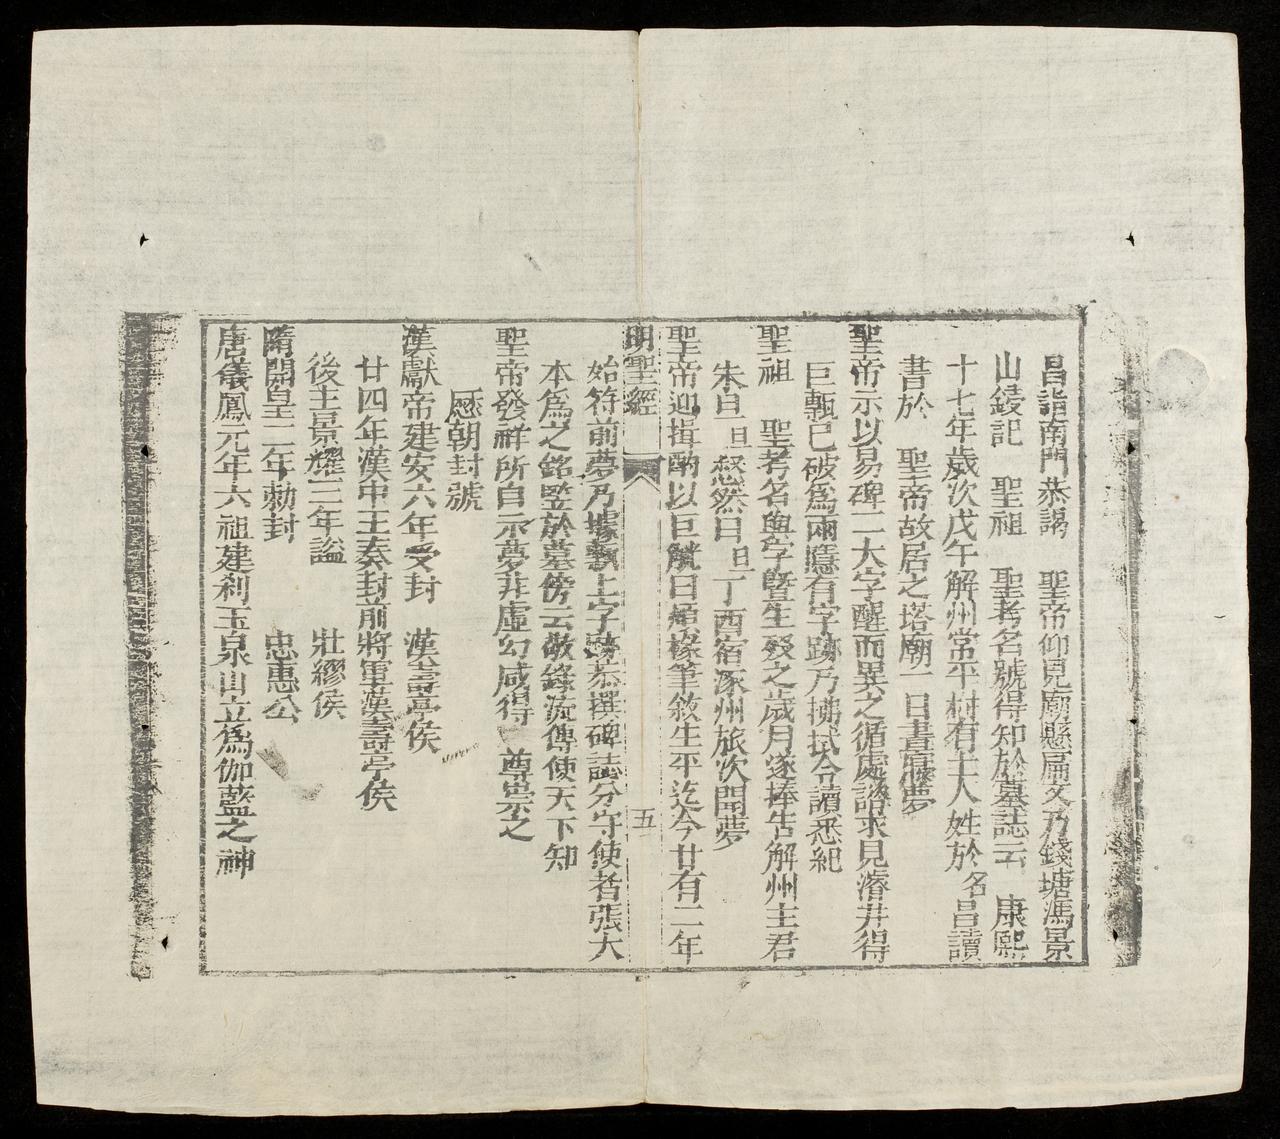 昌詣南門恭謁　聖帝仰見廟懸扁文乃錢塘馮景
山鋟記　聖祖　聖考名號得知於墓誌云　康熙
十七年歲次戊午解州常平村有士人姓於名昌讀
書於　聖帝故居之塔廟一日晝寢夢
聖帝示以易碑二大字醒而異之循處諮求見濬井得
巨甎已破為兩隱有字跡乃拂拭合讀悉紀
聖祖　聖考名與字暨生歿之歲月遂捧告解州主君
朱自旦慇然曰旦丁酉宿涿州旅次閒夢
聖帝迎揖酌以巨觥曰煩椽筆敘生平迄今廿有二年
明聖經　五
始符前夢乃據甎上字跡恭撰碑誌分守使者張大
本為之銘竪於墓傍云敬錄流傳使天下知
聖帝發祥所自示夢非虛幻咸得　尊崇之
歷朝封號
漢獻帝建安六年受封　漢壽亭侯
廿四年漢中王奏封前將軍漢壽亭侯
後主景耀三年謚　壯繆侯
隋開皇二年勅封　忠惠公
唐儀鳳元年六祖建刹玉泉山立為伽藍之神